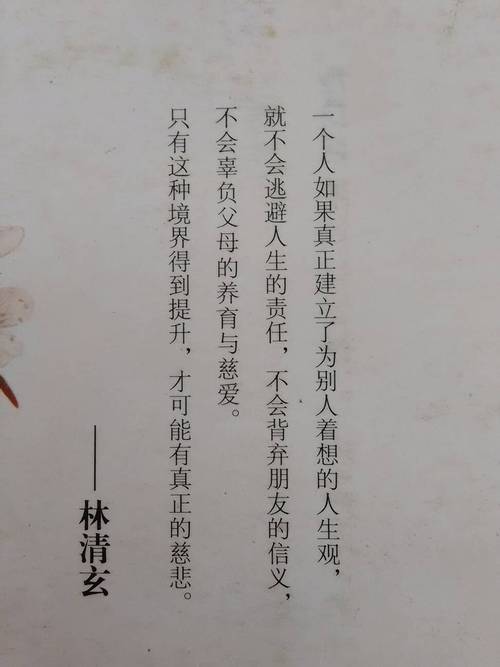 一个人如果真正建立了为别人着想的人生观，
就不会逃避人生的责任，不会背弃朋友的信义，
不会辜负父母的养育与慈爱。
只有这种境界得到提升，才可能有真正的慈悲。
——林清玄